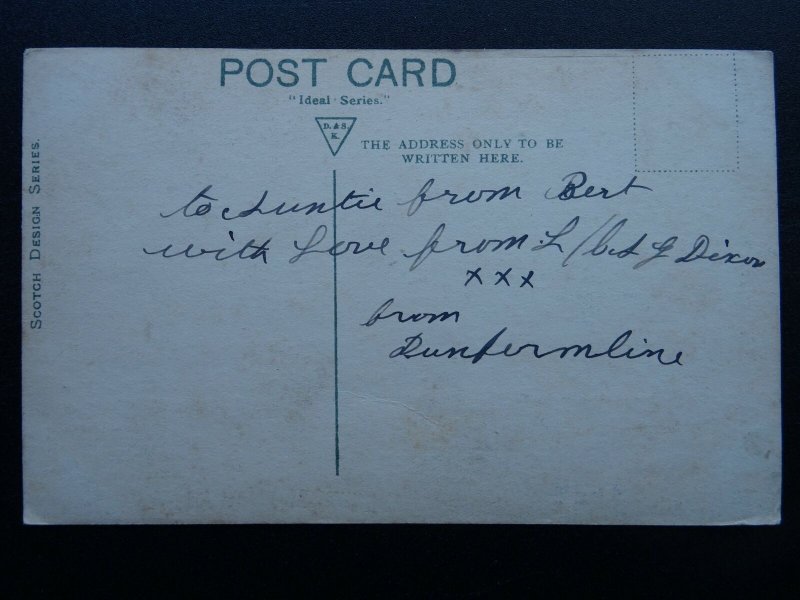 POST CARD
"Ideal Series."
D. & S.
K.
THE ADDRESS ONLY TO BE
WRITTEN HERE.
SCOTCH DESIGN SERIES.
to Auntie from Bert
with Love from L/ Dixon
x x x
from
Dunfermline